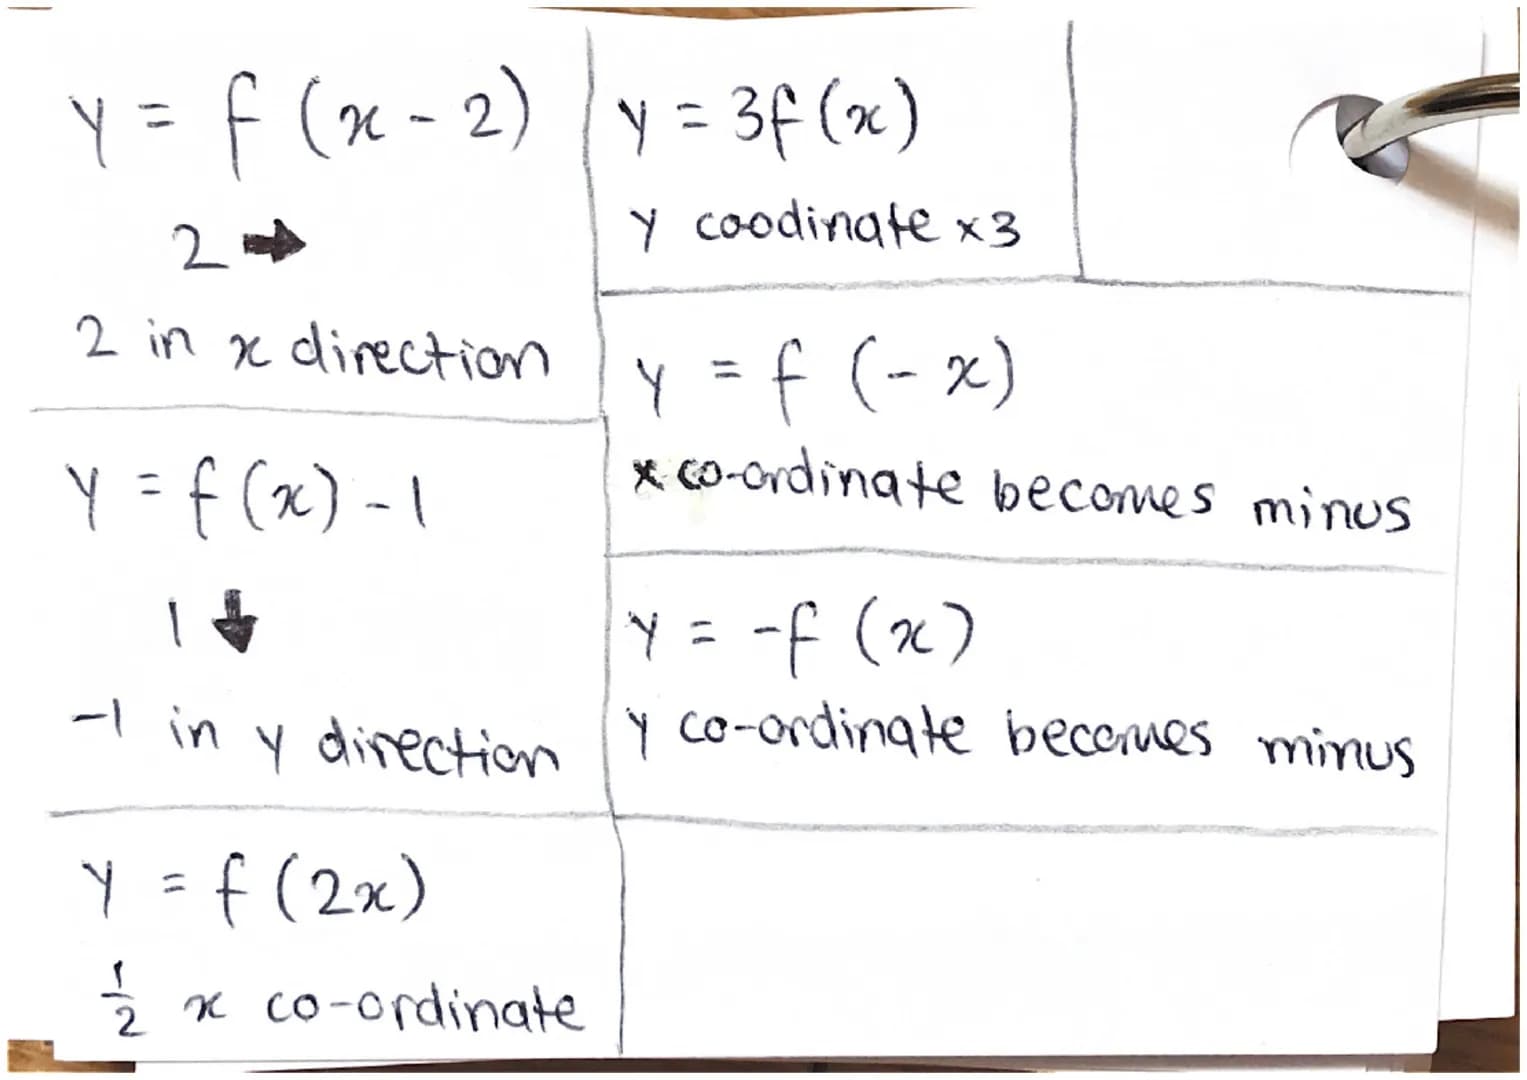 y = f (x - 2)
2 →
2 in x direction
y = f (x) - 1
1 ↓
-1 in y direction
y = f (2x)
1/2 x co-ordinate
y = 3f (x)
y coodinate x3
y = f (- x)
x co-ordinate becomes minus
y = -f (x)
y co-ordinate becomes minus